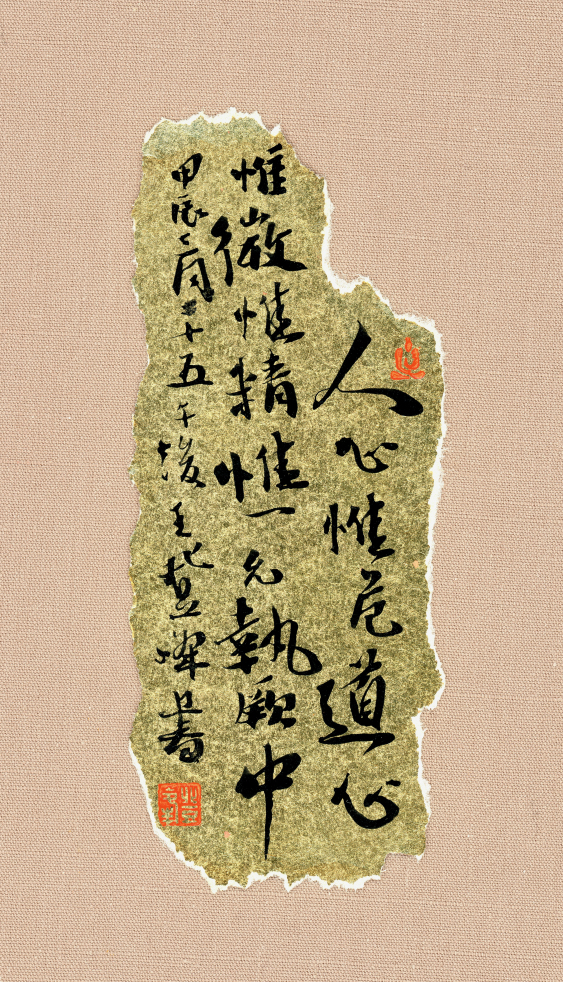 人心惟危道心
惟微惟精惟一允執厥中
甲辰八月二十五午後王登坤上書